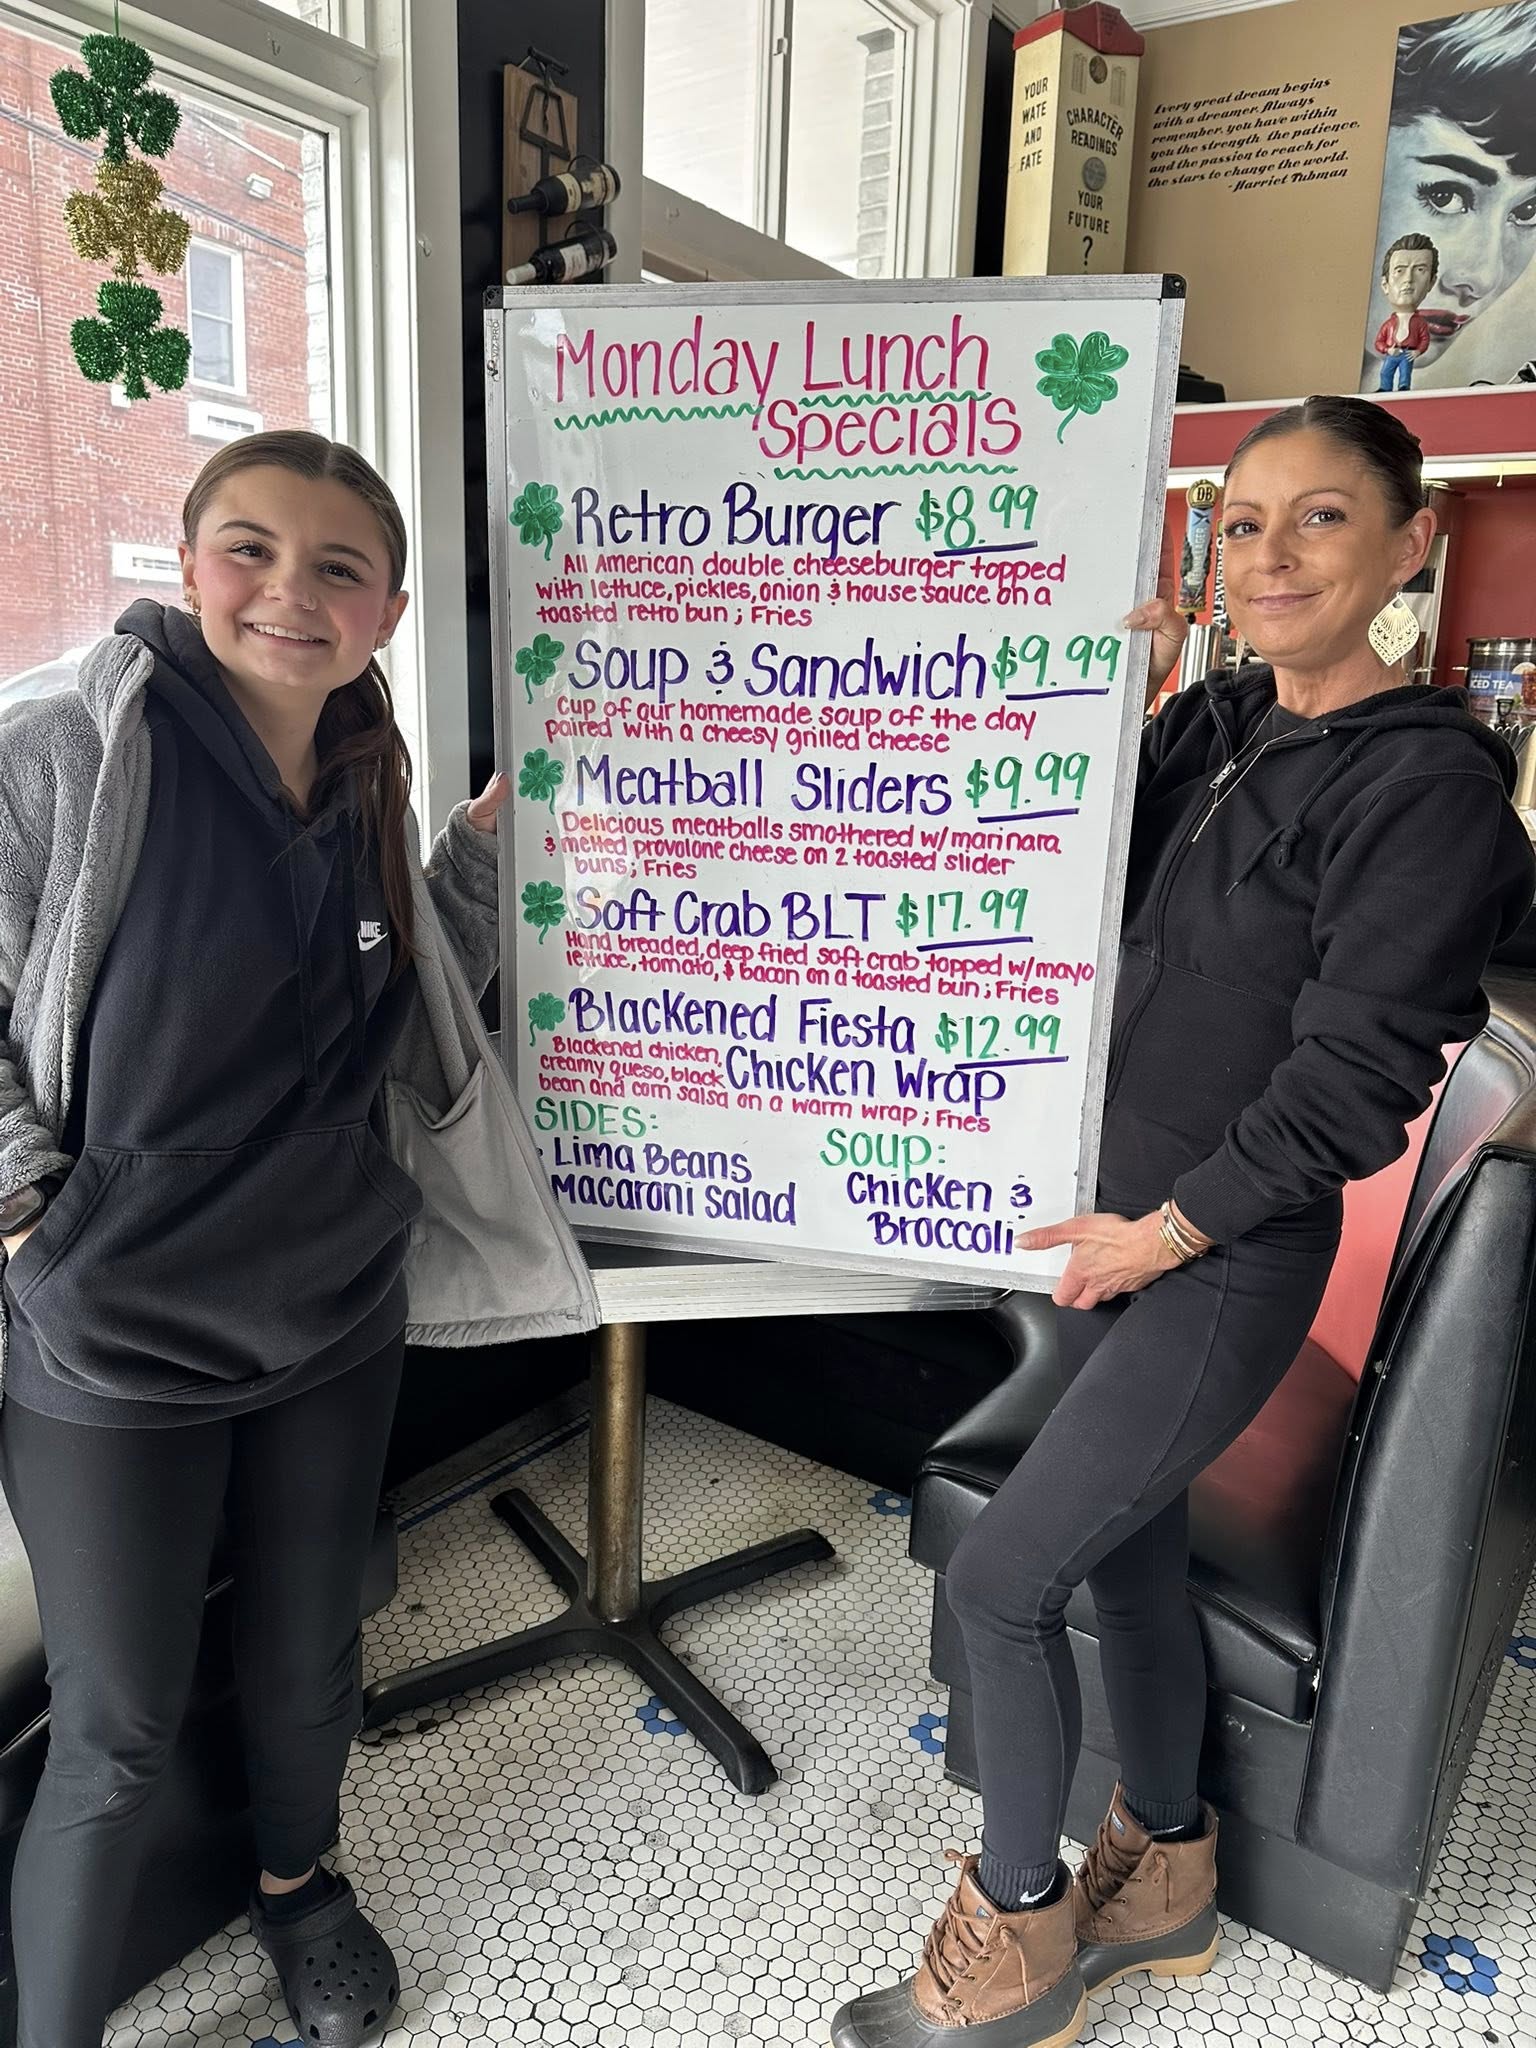 YOUR
WATE
AND
FATE
CHARACTER
READINGS
YOUR
FUTURE
?
Every great dream begins
with a dreamer. Always
remember, you have within
you the strength, the patience,
and the passion to reach for
the stars to change the world.
-Harriet Tubman
Monday Lunch
Specials
Retro Burger $8.99
All American double cheeseburger topped
with lettuce, pickles, onion & house sauce on a
toasted retro bun ; Fries
Soup & Sandwich $9.99
Cup of our homemade soup of the day
paired with a cheesy grilled cheese
Meatball Sliders $9.99
Delicious meatballs smothered w/marinara
& melted provolone cheese on 2 toasted slider
buns; Fries
Soft Crab BLT $17.99
Hand breaded, deep fried soft crab topped w/mayo
lettuce, tomato, & bacon on a toasted bun ; Fries
Blackened Fiesta $12.99
Chicken Wrap
Blackened chicken,
creamy queso, black
bean and corn salsa on a warm wrap ; Fries
SIDES:
Lima Beans
Macaroni Salad
SOUP:
Chicken &
Broccoli
NIKE
DB
ICED TEA